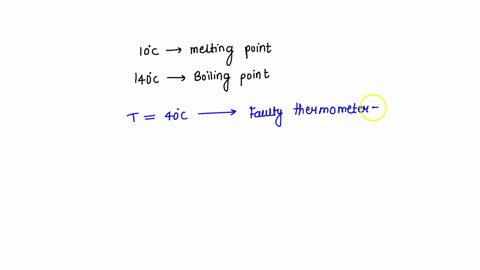 10°C → melting point
140°C → Boiling point
T = 40°C → Faulty thermometer -